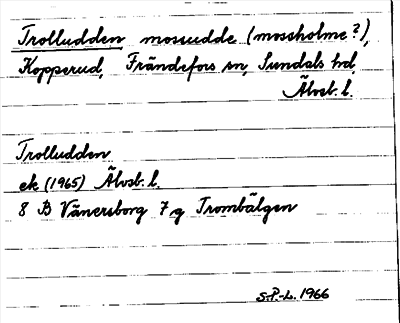 Trolludden mossudde (mossholme?),
Kopperud, Frändefors sn, Sundals hd,
Älvsb. l.
Trolludden
ek (1965) Älvsb. l.
8 B Vänersborg 7 g Trombälgen
S.P.-L. 1966